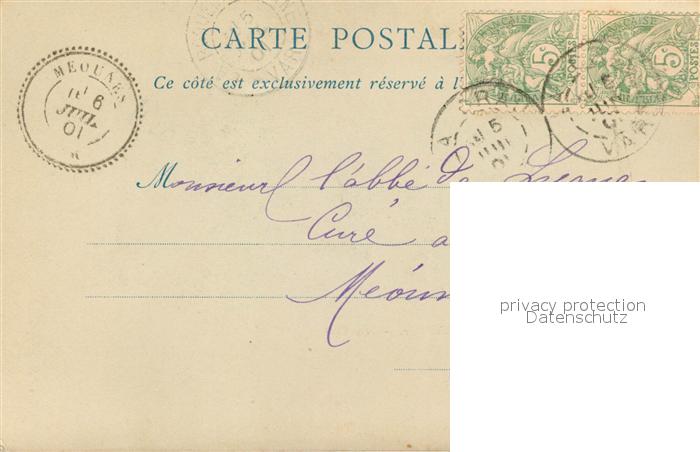 CARTE POSTAL
Ce côté est exclusivement réservé à l'
MEOUNES
6
JUIL
01
5c
5c
POSTES
VAR
Monsieur l'abbé de
Curé a
Méoun
privacy protection
Datenschutz